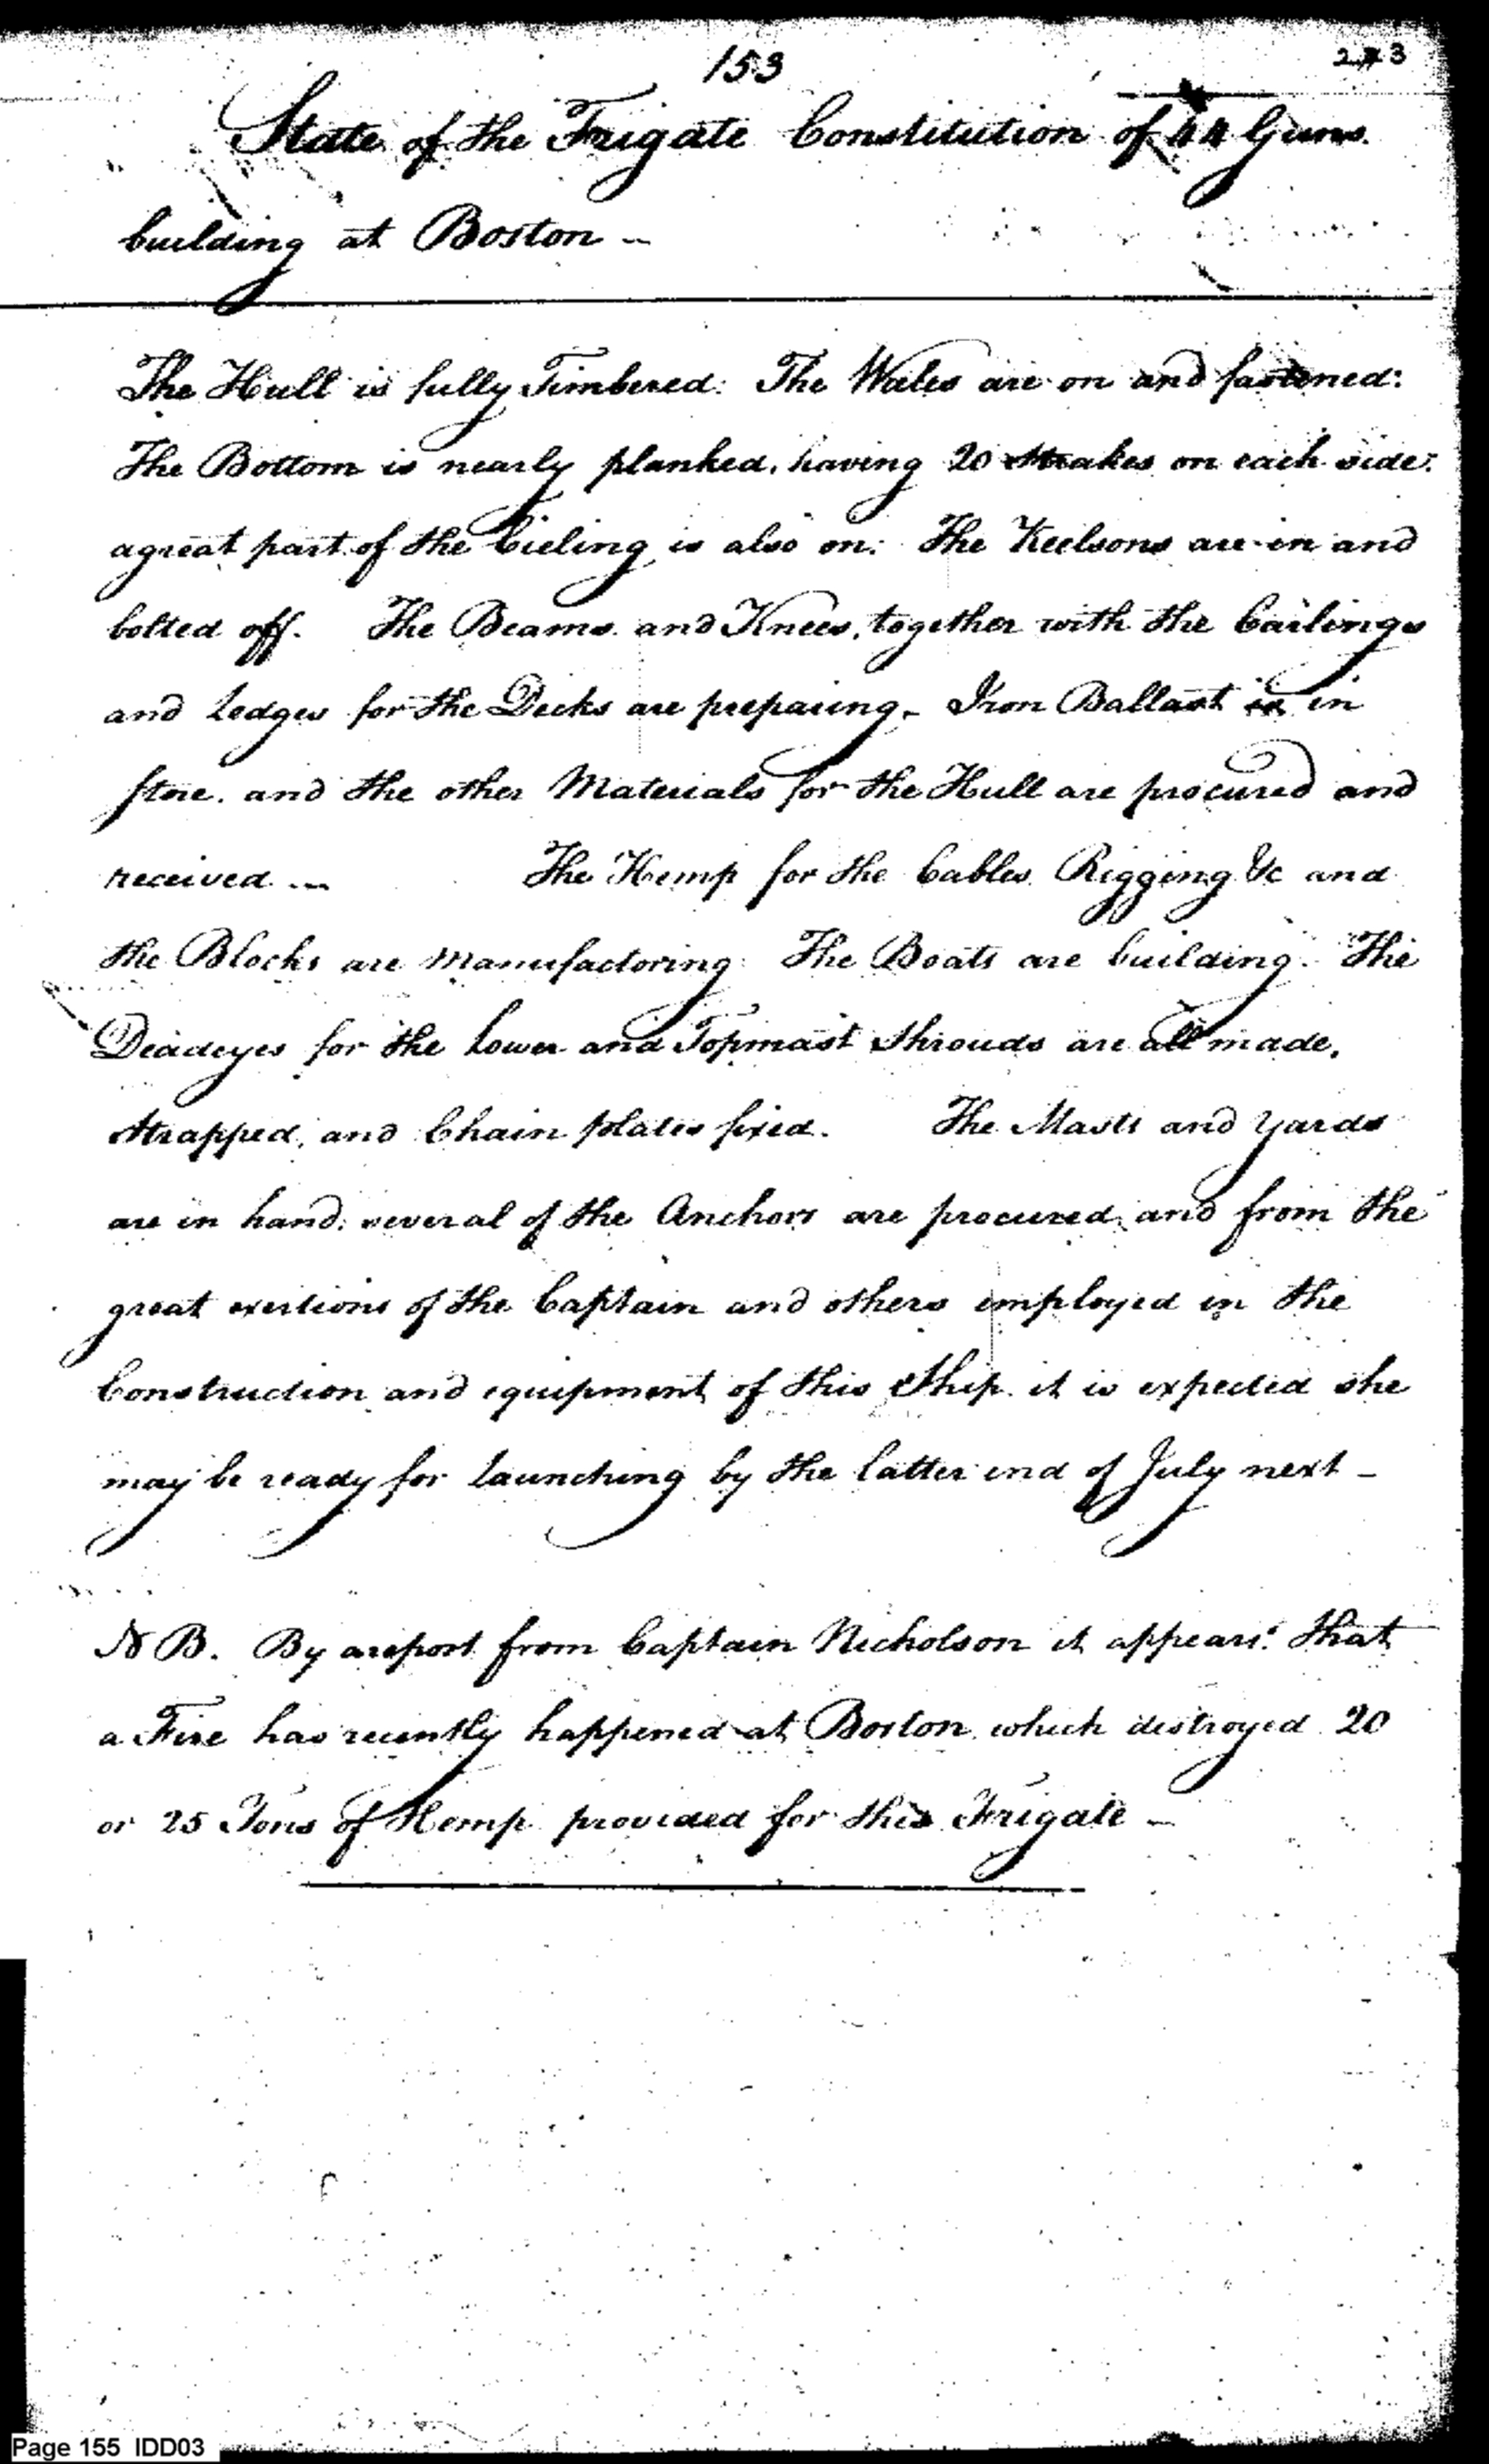 153
State of the Frigate Constitution of 44 Guns.
building at Boston –
The Hull is fully Timbered: The Wales are on and fastened:
The Bottom is nearly planked, having 20 strakes on each side:
a great part of the Cieling is also on: The Keelsons are in and
bolted off. The Beams and Knees, together with the Carlings
and Ledges for the Decks are preparing – Iron Ballast is in
store. and the other Materials for the Hull are procured and
received –
The Hemp for the Cables Rigging &c and
the Blocks are Manufactoring: The Boats are building. The
Deadeyes for the Lower and Topmast Shrouds are all made,
strapped, and Chain plates fixed. The Masts and Yards
are in hand: several of the Anchors are procured, and from the
great exertions of the Captain and others employed in the
Construction and equipment of this Ship it is expected she
may be ready for launching by the latter end of July next –
N B. By a report from Captain Nicholson it appears that
a Fire has recently happened at Boston which destroyed 20
or 25 Tons of Hemp provided for this Frigate –
Page 155 IDD03